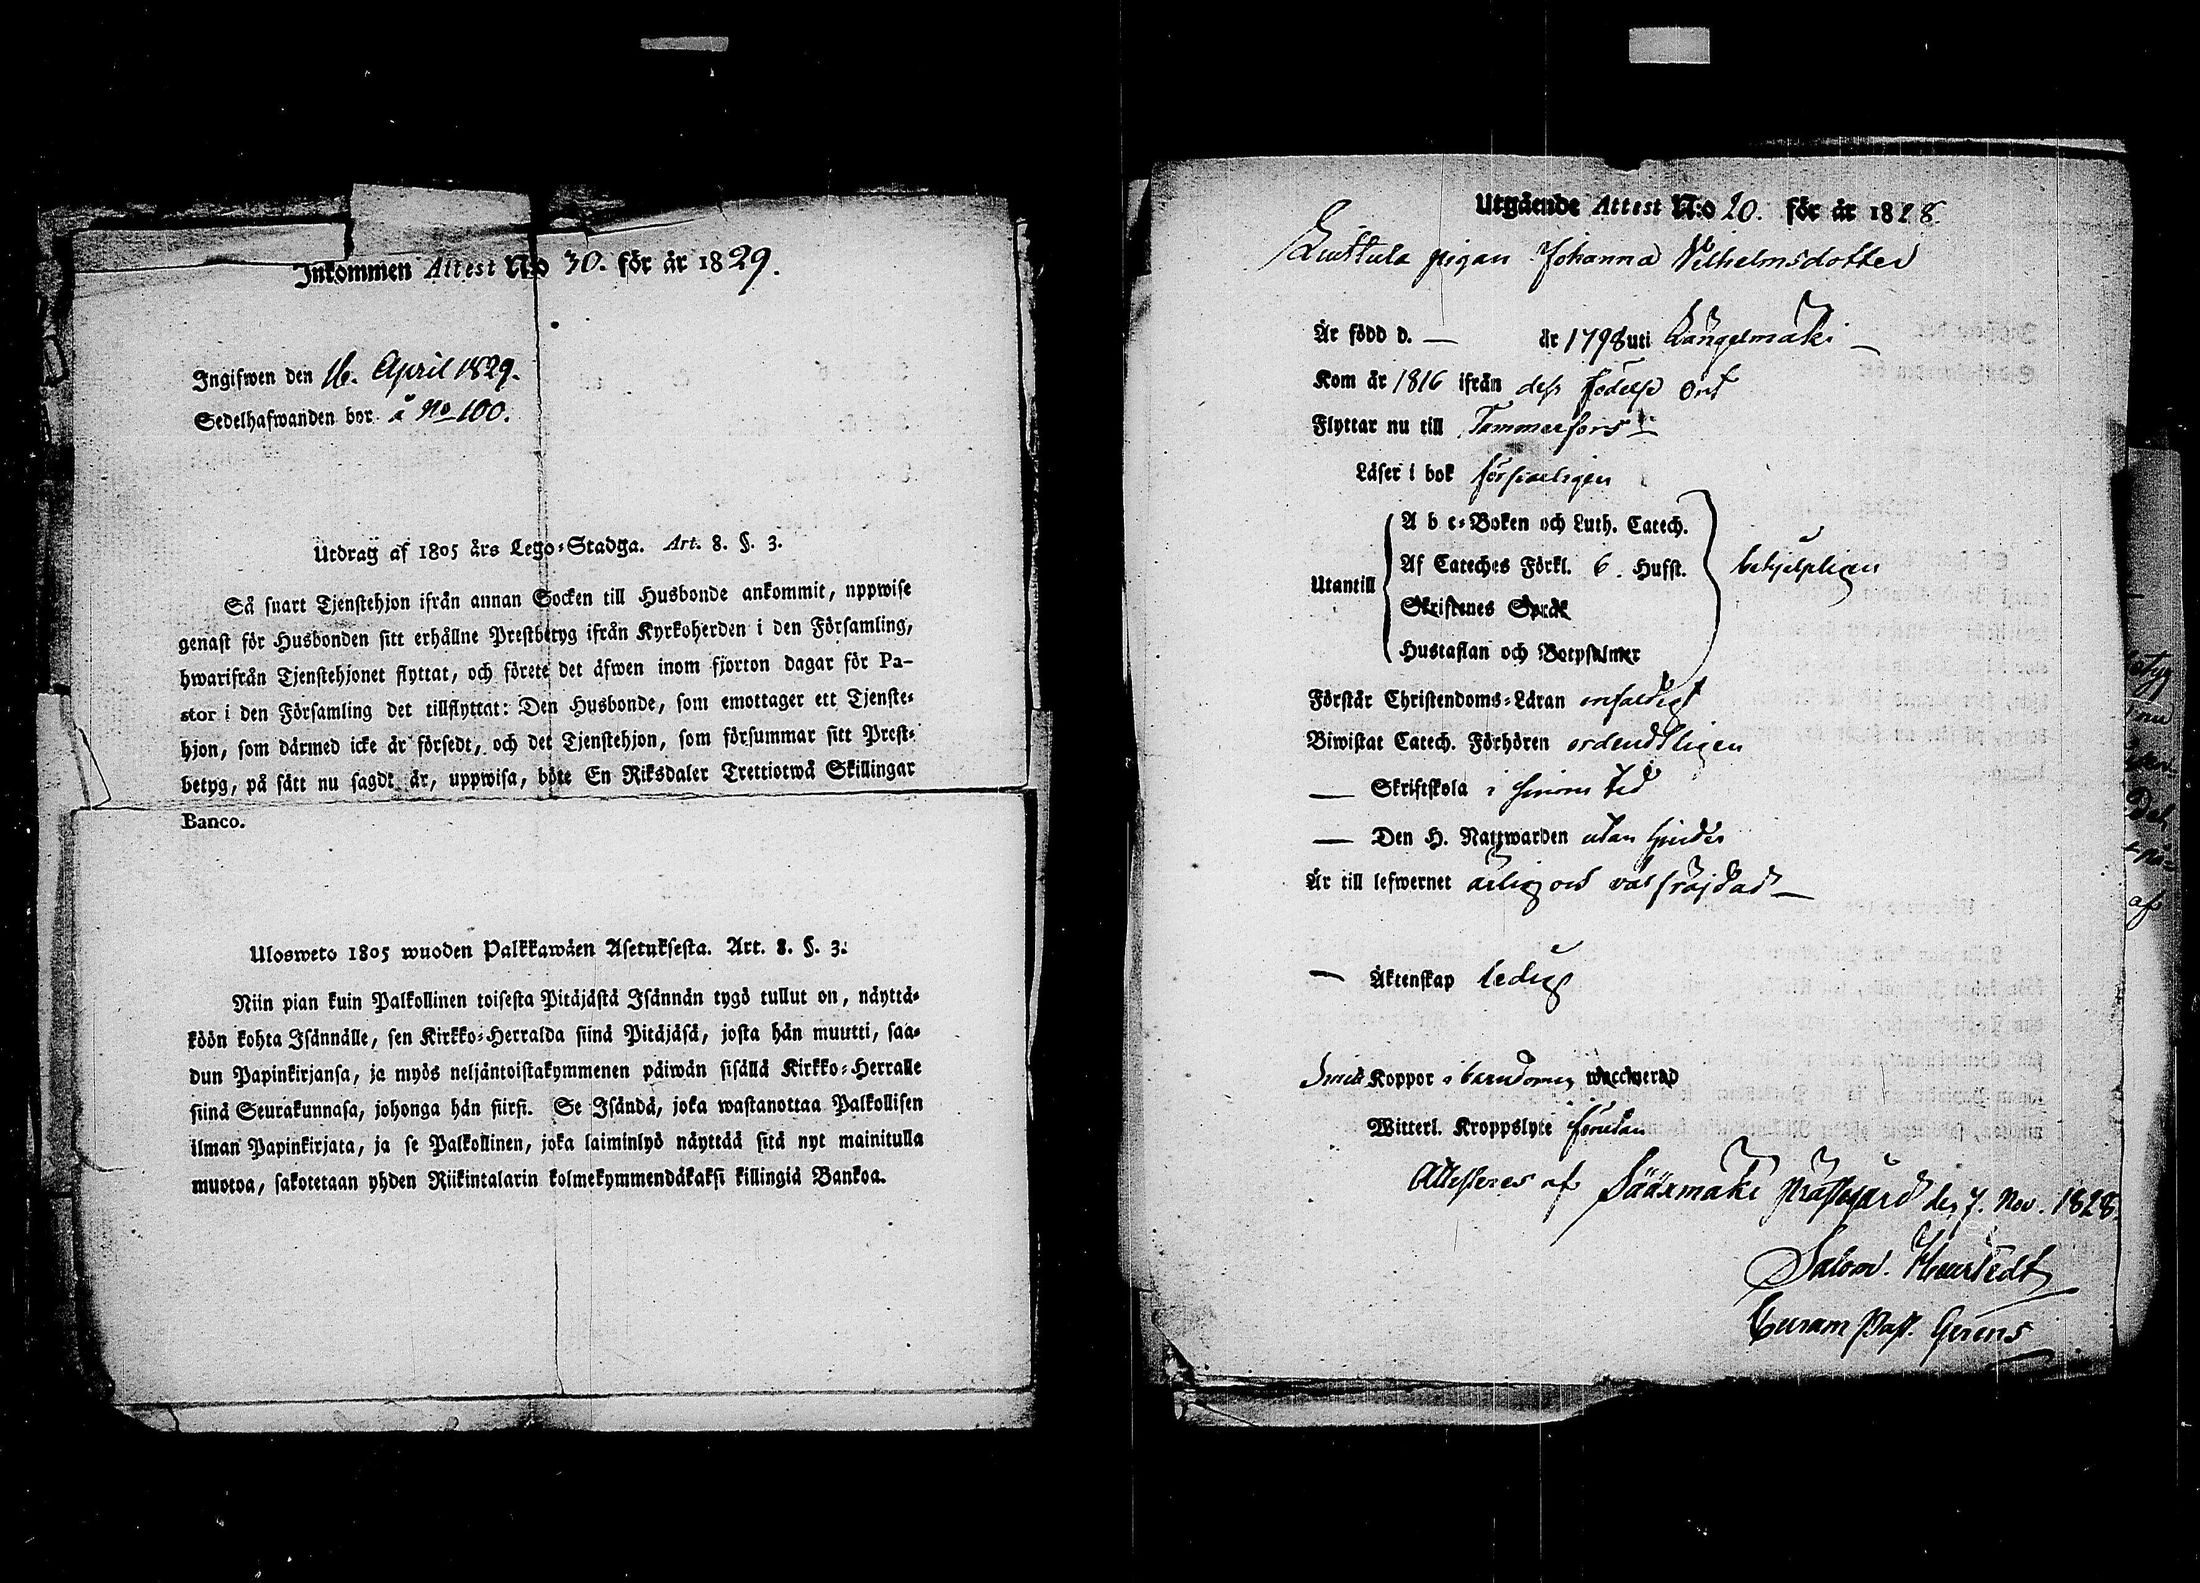 Inkommen Attest No 30. för år 1829.
Ingifwen den 16. April 1829.
Sedelhafwanden bor å No 100.
Utdrag af 1805 års Lego-Stadga. Art. 8. §. 3.
Så snart Tjenstehjon ifrån annan Socken till Husbonde ankommit, uppwise
genast för Husbonden sitt erhållne Prestbetyg ifrån Kyrkoherden i den Församling,
hwarifrån Tjenstehjonet flyttat, och förete det äfwen inom fjorton dagar för Pa-
stor i den Församling det tillflyttat: Den Husbonde, som emottager ett Tjenste-
hjon, som därmed icke är försedt, och det Tjenstehjon, som försummar sitt Prest-
betyg, på sätt nu sagdt är, uppwisa, böte En Riksdaler Trettiotwå Skillingar
Banco.
Ulosweto 1805 wuoden Palkkawäen Asetuksesta. Art. 8. §. 3.
Niin pian kuin Palkollinen toisesta Pitäjästä Isännän tygö tullut on, näyttä-
köön kohta Isännälle, sen Kirkko-Herralda siinä Pitäjäsä, josta hän muutti, saa-
dun Papinkirjansa, ja myös neljäntoistakymmenen päiwän sisällä Kirkko-Herralle
siinä Seurakunnasa, johonga hän siirsi. Se Isändä, joka wastanottaa Palkollisen
ilman Papinkirjata, ja se Palkollinen, joka laiminlyö näyttää sitä nyt mainitulla
muotoa, sakotetaan yhden Riikintalarin kolmekymmendäkaksi killingiä Bankoa.
Utgående Attest N:o 20. för år 1828.
pigan Johanna Wilhelmsdotter
Är född d. — år 1798 uti Kängelmäki —
Kom år 1816 ifrån dess födelse ort
Flyttar nu till Tammerfors —
Läser i bok försvarligen
A b c-Boken och Luth. Catech.
Af Cateches Förkl. 6. Hufst. behjelpligen
Utantill
Skriftenes Språk
Hustaflan och Botpsalmer
Förstår Christendoms-Läran enfaldigt
Biwistat Catech. Förhören ordendtligen
— Skriftskola i sinom tid
— Den H. Nattwarden utan hinder
Är till lefwernet ärlig och väl fräjdad —
— Äktenskap ledig
Små Koppor i barndomen waccinerad
Witterl. Kroppslyte förutan
Attesteres af Sääxmäki Prästegård den 7. Nov. 1828.
Salom.
Curam Past. Gerens